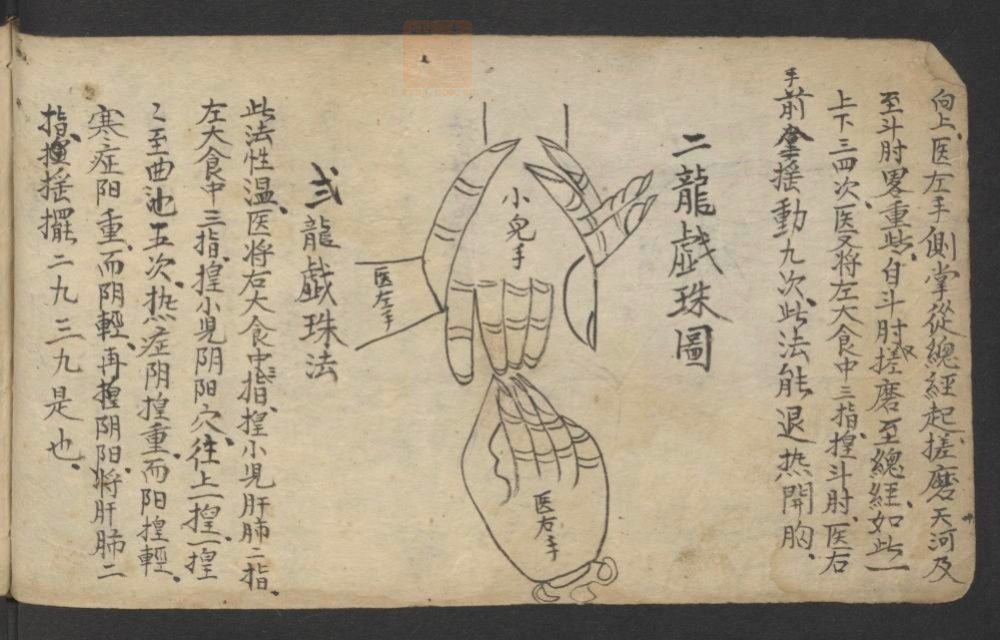 向上、医左手側掌從總経起搓磨天河及
至斗肘畧重些、自斗肘搓磨至總経、如此一
上下三四次、医又将左大食中三指揑斗肘、医右
手前拿搖動九次、此法能退热開胸、
二龍戯珠圖
小児手
医左手
医右手
弍龍戯珠法
此法性温、医将右大食中指、揑小児肝肺二指、
左大食中三指、揑小児阴阳穴、往上一揑一揑
〻至曲池五次、热症阴揑重、而阳揑輕、
寒症阳重、而阴輕、再揑阴阳、将肝肺二
指、搖擺二九三九是也、